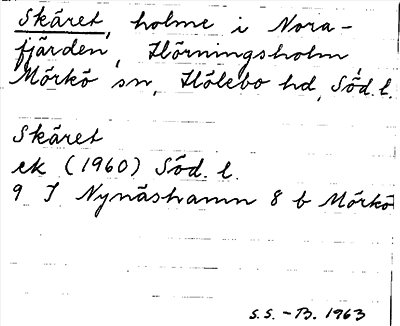 Skäret, holme i Nora-
fjärden, Hörningsholm,
Mörkö sn, Hölebo hd, Söd. l.
Skäret
ek (1960) Söd. l.
9 I Nynäshamn 8 b Mörkö
S.S. - B. 1963